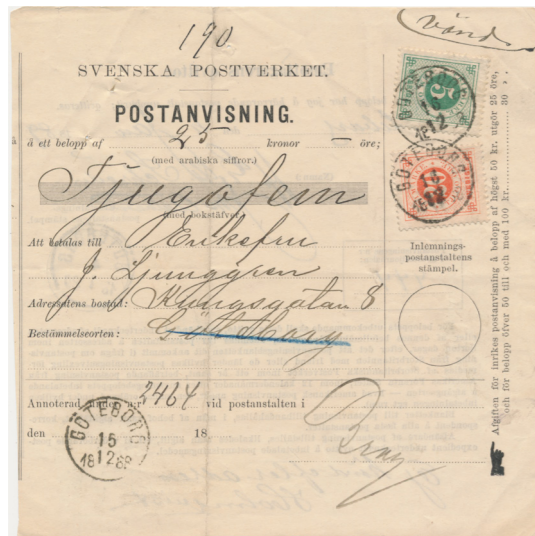 vänd
190
SVENSKA POSTVERKET.
POSTANVISNING.
å ett belopp af 25 kronor — öre;
(med arabiska siffror.)
Tjugofem
(med bokstäfver.)
Att betalas till Enkefru
J. Ljunggren
Adressatens bostad: Kungsgatan 8
Bestämmelseorten: Göteborg
Annoterad under n:r 2464 vid postanstalten i
den 18
GÖTEBORG
15
12
18 88
5
GÖTEBORG
15
12
18
GÖTEBORG
15
12
18
Inlemnings-
postanstaltens
stämpel.
Afgiften för inrikes postanvisning å belopp af högst 50 kr. utgör 25 öre,
och för belopp öfver 50 till och med 100 kr. 30 „.